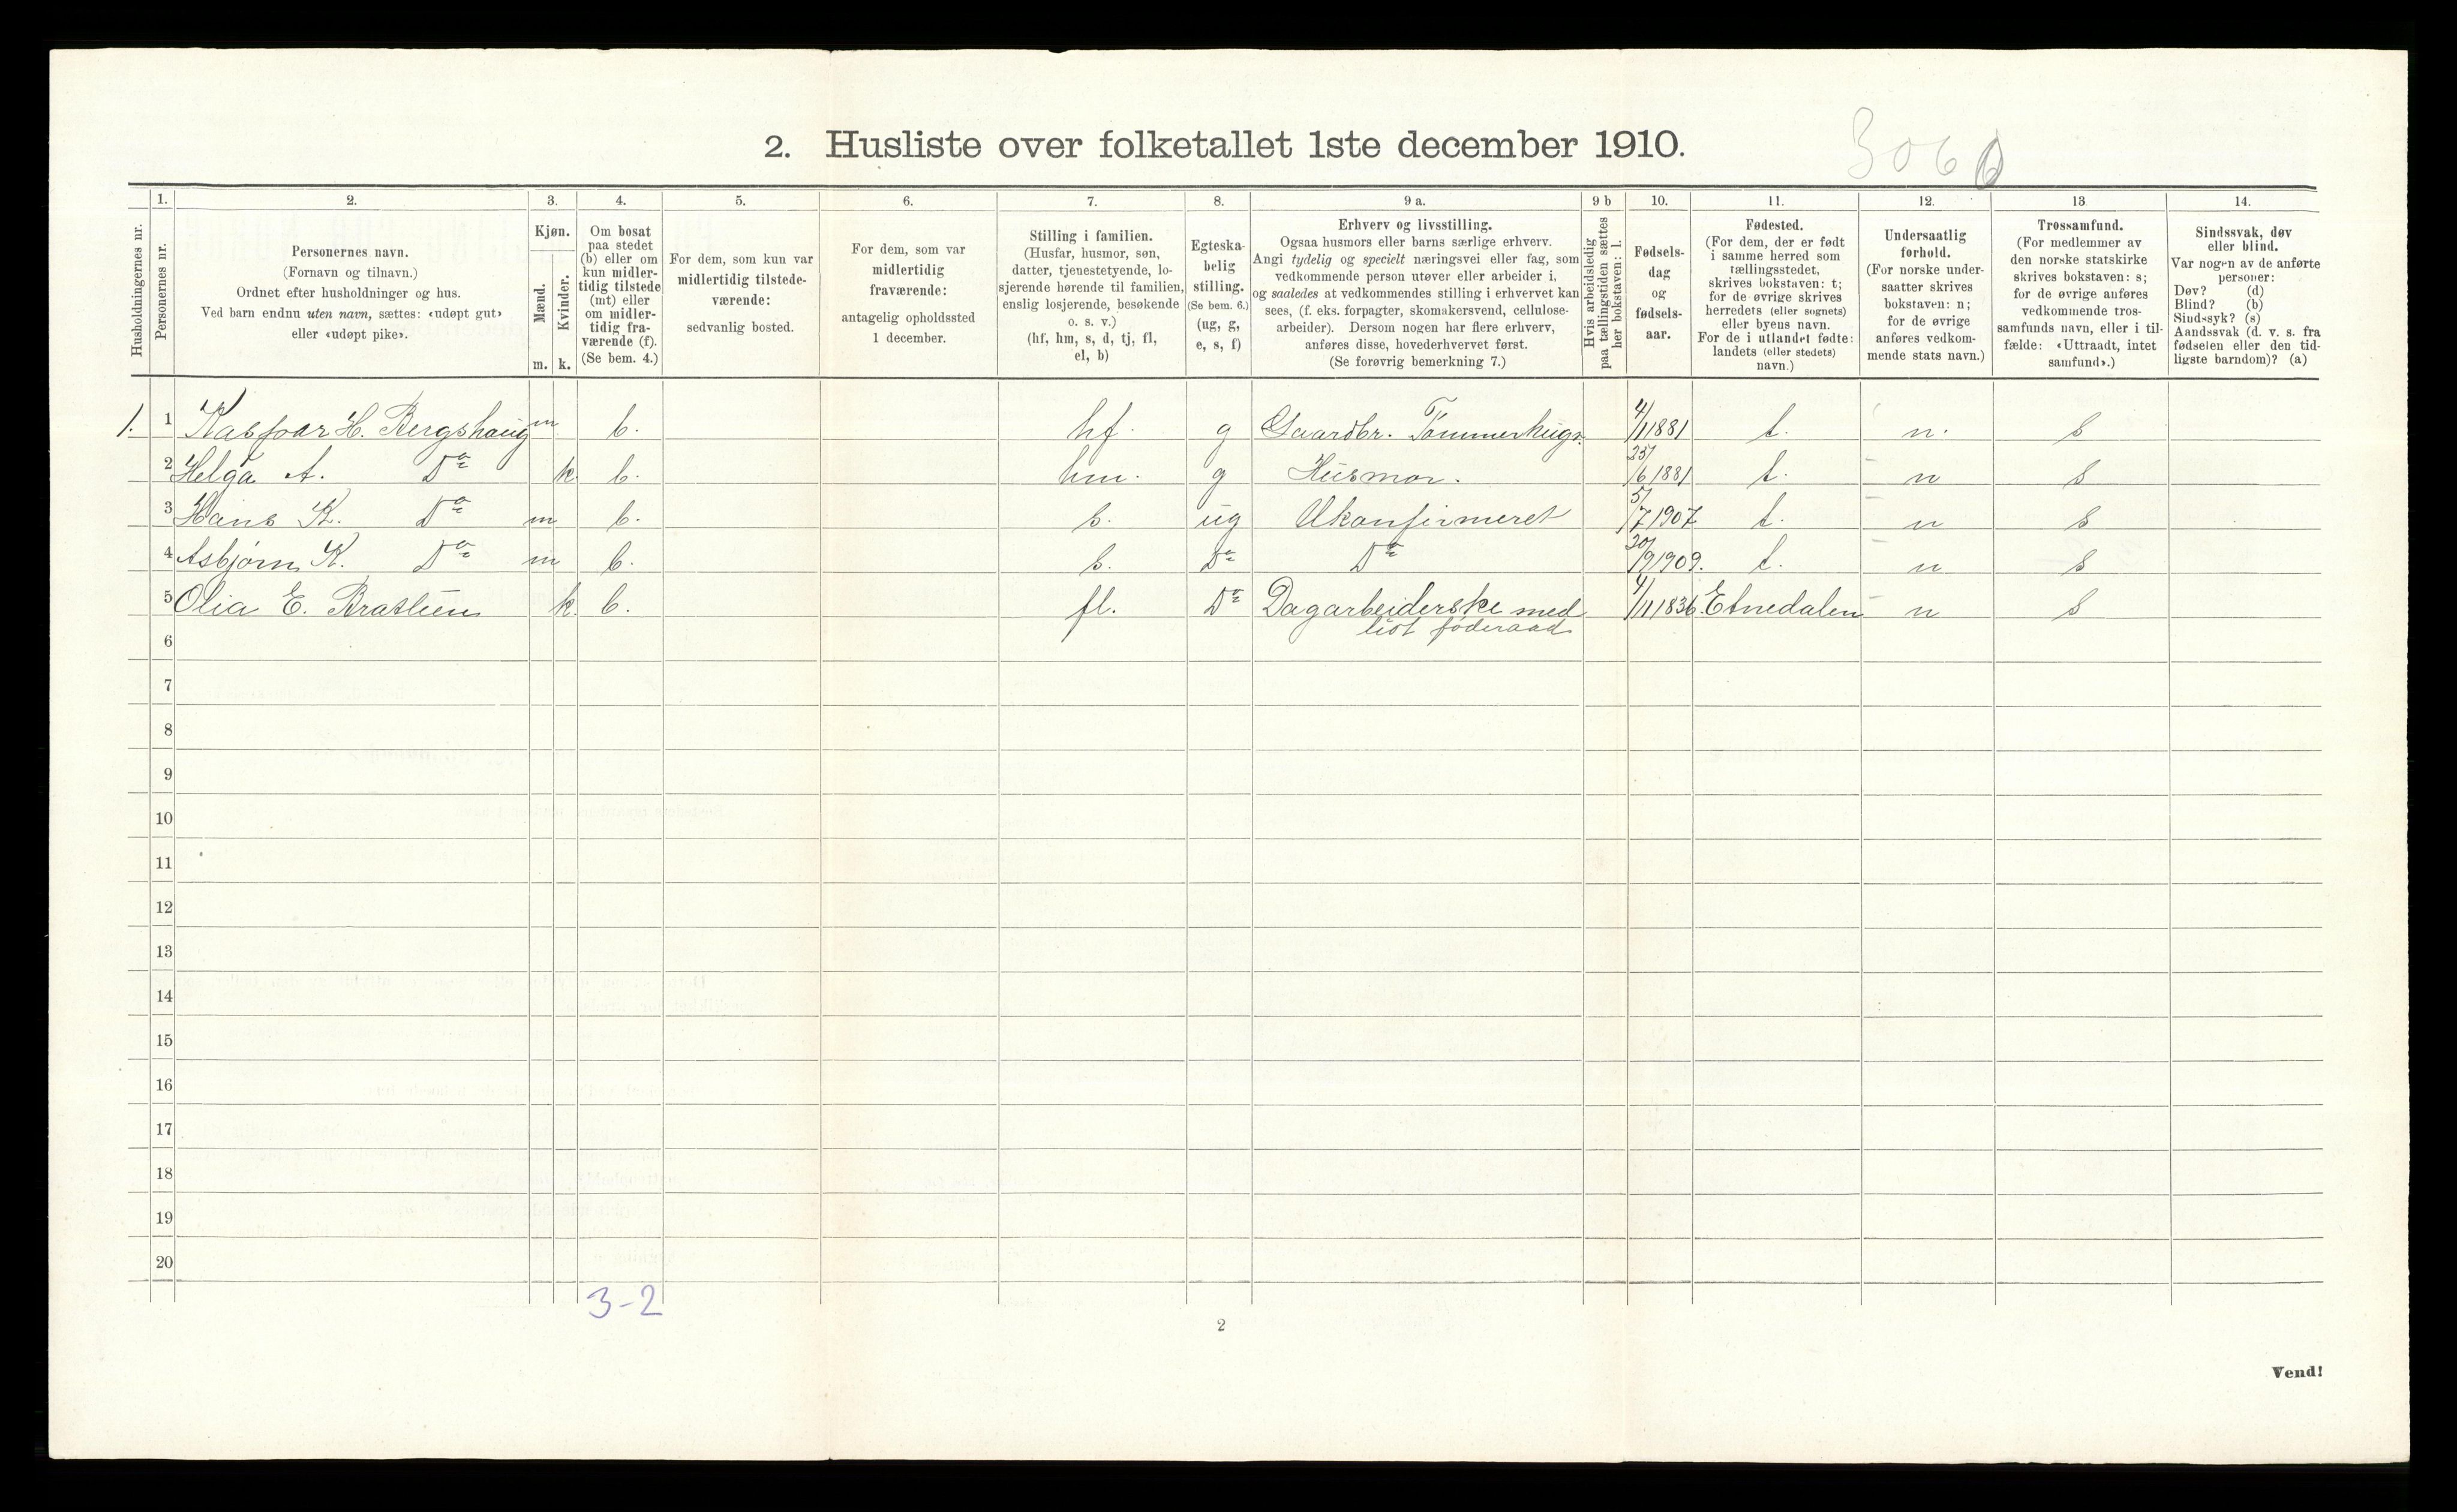 2. Husliste over folketallet 1ste december 1910.
306
1. 2. 3. 4. 5. 6. 7. 8. 9 a. 9 b 10. 11. 12. 13 14.
Husholdningernes nr.
Personernes nr.
Personernes navn.
(Fornavn og tilnavn.)
Ordnet efter husholdninger og hus.
Ved barn endnu uten navn, sættes: «udøpt gut»
eller «udøpt pike».
Kjøn.
Mænd.
Kvinder.
m. k.
Om bosat
paa stedet
(b) eller om
kun midler-
tidig tilstede
(mt) eller
om midler-
tidig fra-
værende (f).
(Se bem. 4.)
For dem, som kun var
midlertidig tilstede-
værende:
sedvanlig bosted.
For dem, som var
midlertidig
fraværende:
antagelig opholdssted
1 december.
Stilling i familien.
(Husfar, husmor, søn,
datter, tjenestetyende, lo-
sjerende hørende til familien,
enslig losjerende, besøkende
o. s. v.)
(hf, hm, s, d, tj, fl,
el, b)
Egteska-
belig
stilling.
(Se bem. 6.)
(ug, g,
e, s, f)
Erhverv og livsstilling.
Ogsaa husmors eller barns særlige erhverv.
Angi tydelig og specielt næringsvei eller fag, som
vedkommende person utøver eller arbeider i,
og saaledes at vedkommendes stilling i erhvervet kan
sees, (f. eks. forpagter, skomakersvend, cellulose-
arbeider). Dersom nogen har flere erhverv,
anføres disse, hovederhvervet først.
(Se forøvrig bemerkning 7.)
Hvis arbeidsledig
paa tællingstiden sættes
her bokstaven: l.
Fødsels-
dag
og
fødsels-
aar.
Fødested.
(For dem, der er født
i samme herred som
tællingsstedet,
skrives bokstaven: t;
for de øvrige skrives
herredets (eller sognets)
eller byens navn.
For de i utlandet fødte:
landets (eller stedets)
navn.)
Undersaatlig
forhold.
(For norske under-
saatter skrives
bokstaven: n;
for de øvrige
anføres vedkom-
mende stats navn.)
Trossamfund.
(For medlemmer av
den norske statskirke
skrives bokstaven: s;
for de øvrige anføres
vedkommende tros-
samfunds navn, eller i til-
fælde: «Uttraadt, intet
samfund».)
Sindssvak, døv
eller blind.
Var nogen av de anførte
personer:
Døv? (d)
Blind? (b)
Sindssyk? (s)
Aandssvak (d. v. s. fra
fødselen eller den tid-
ligste barndom)? (a)
1. 1 Kaspar H. Bergshaug m b. hf. g Gaardbr. Tømmerhugs. 4/11881 t. n. s
2 Helga A. Do k. b. hm. g Husmor. 25/6 1881 t. n s
3 Hans K. Do m b. s. ug Ukonfirmeret 5/7 1907 t. n s
4 Asbjørn K. Do m b. s. Do Do 20/9 1909. t. n s
5 Olia E. Bratlien k. b. fl. Do Dagarbeiderske med 4/11 1836 Etnedalen n s
lidt føderaad
6
7
8
9
10
11
12
13
14
15
16
17
18
19
20
3-2
2
Vend!